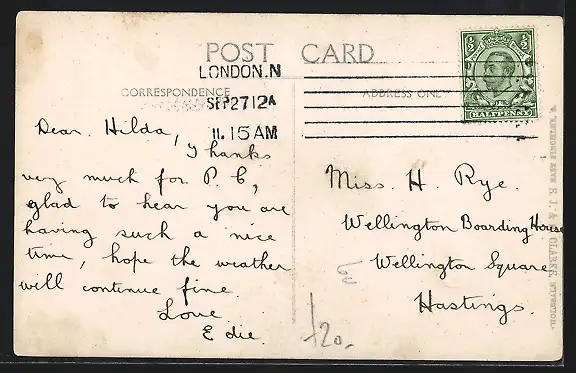 POST CARD
LONDON.N
CORRESPONDENCE
ADDRESS ONLY
SEP 27 12 A
11.15 AM
HALFPENNY
Dear Hilda,
Thanks
very much for P. C,
glad to hear you are
having such a nice
time, hope the weather
will continue fine.
Love
Edie
Miss. H. Rye.
Wellington Boarding House
Wellington Square
Hastings.
120.-